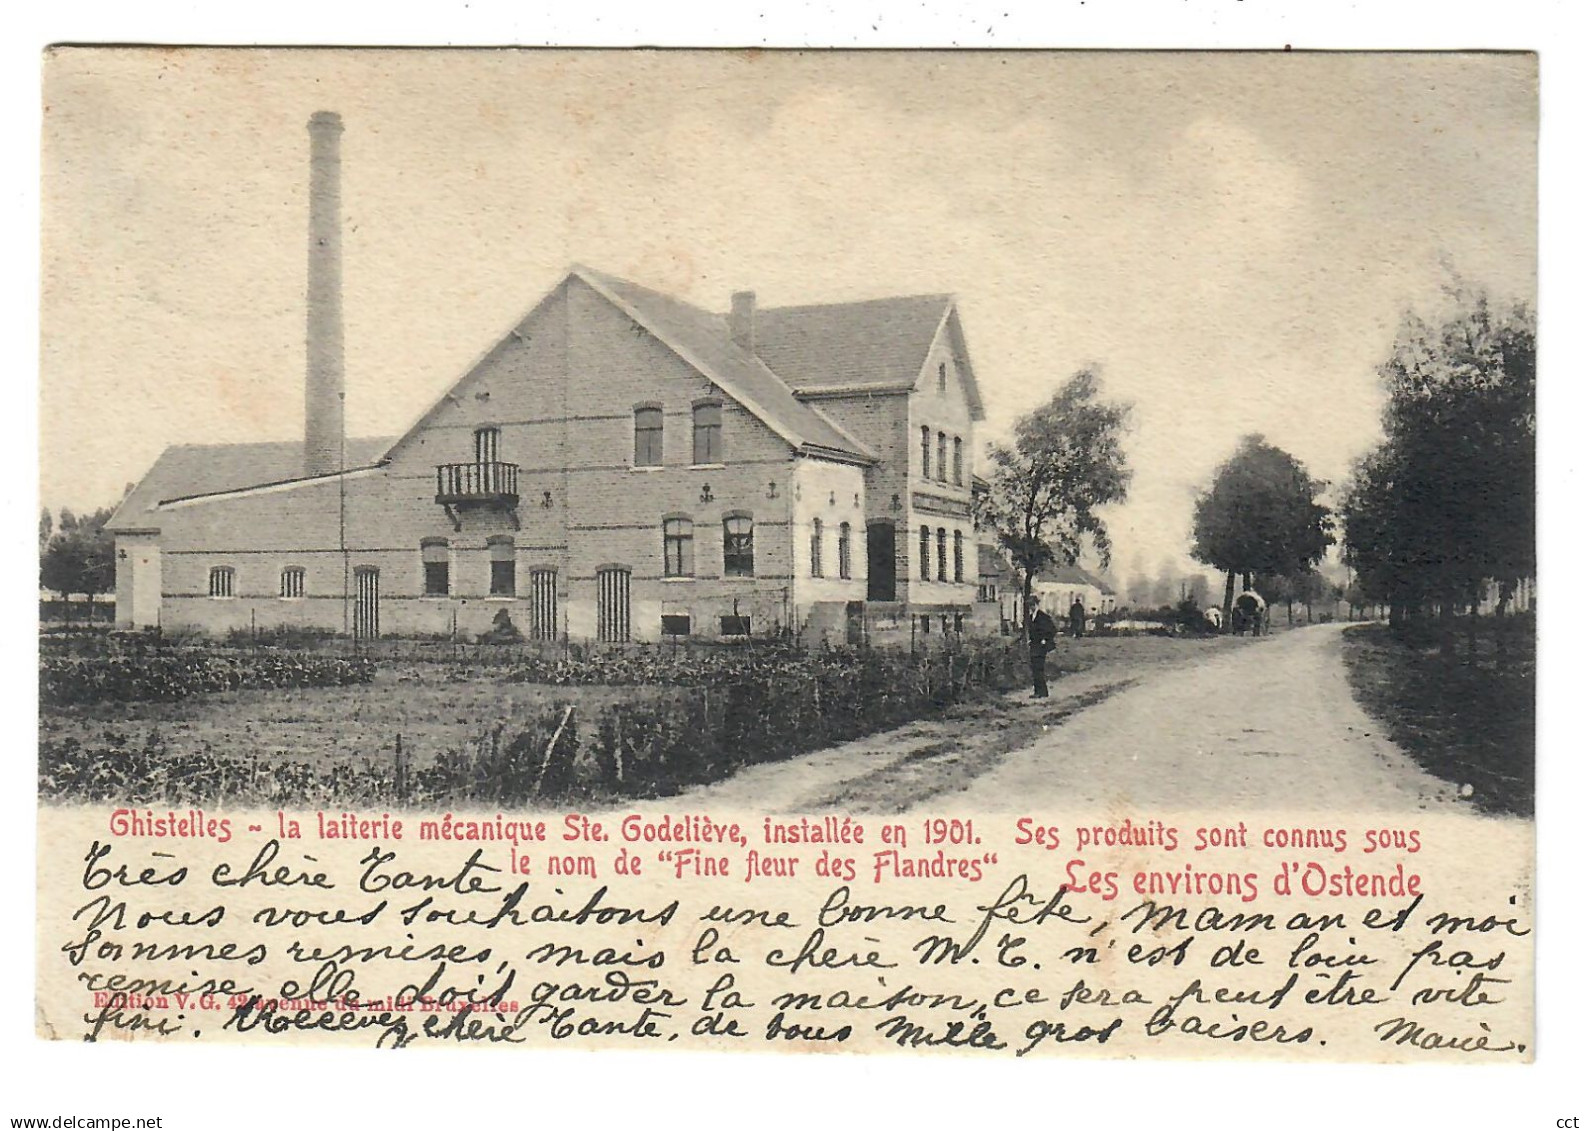 Ghistelles ~ la laiterie mécanique Ste. Godeliève, installée en 1901. Ses produits sont connus sous
le nom de "Fine fleur des Flandres"
Les environs d'Ostende
Très chère Tante,
Nous vous souhaitons une bonne fête, Maman et moi
sommes remises, mais la chère M. T. n'est de loin pas
remise, elle doit garder la maison, ce sera peut être vite
Edition V.G. 42 avenue du midi Bruxelles
fini. Recevez chère Tante, de nous mille gros baisers. Marie.
delcampe.net
cct